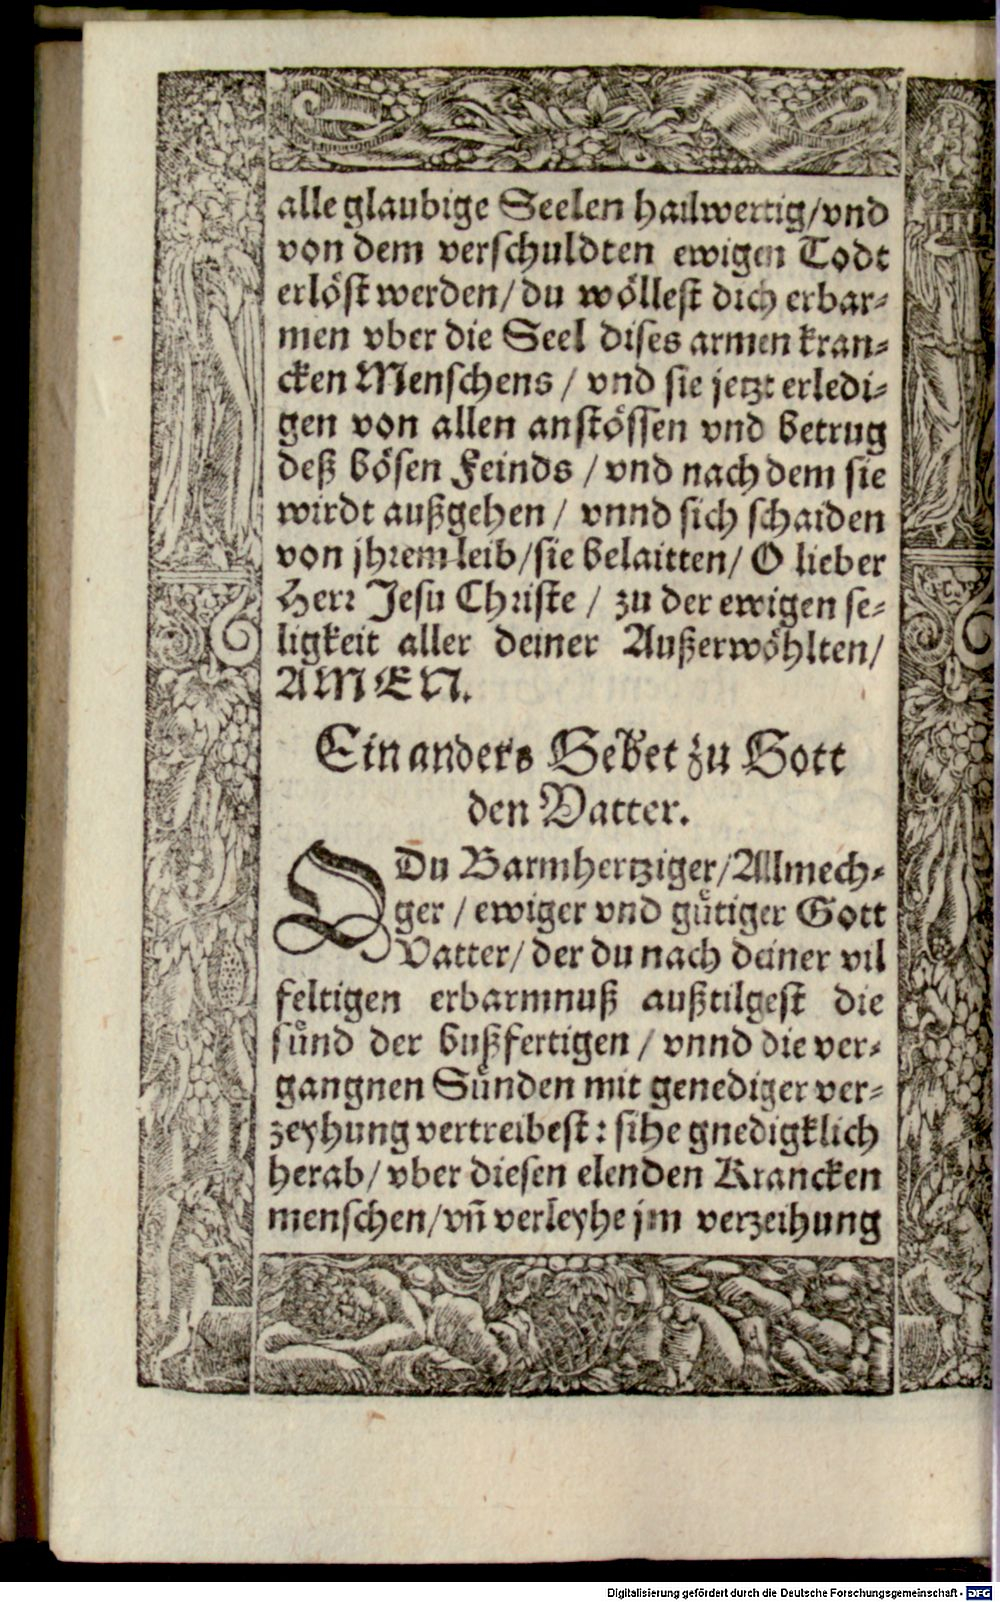 alle glaubige Seelen hailwertig/vnd
von dem verschuldten ewigen Todt
erlöst werden/ du wöllest dich erbar-
men vber die Seel dises armen kran-
cken Menschens / vnd sie jetzt erledi-
gen von allen anstössen vnd betrug
deß bösen Feinds / vnd nach dem sie
wirdt außgehen / vnnd sich schaiden
von jhrem leib/sie belaitten/ O lieber
Herr Jesu Christe / zu der ewigen se-
ligkeit aller deiner Außerwöhlten/
AMEN.
Ein anders Gebet zu Gott
den Vatter.
O Du Barmhertziger/Allmech-
ger / ewiger vnd gütiger Gott
Vatter/ der du nach deiner vil
feltigen erbarmnuß außtilgest die
sünd der bußfertigen / vnnd die ver-
gangnen Sünden mit genediger ver-
zeyhung vertreibest: sihe gnedigklich
herab/ vber diesen elenden Krancken
menschen/vñ verleyhe jm verzeihung
Digitalisierung gefördert durch die Deutsche Forschungsgemeinschaft - DFG